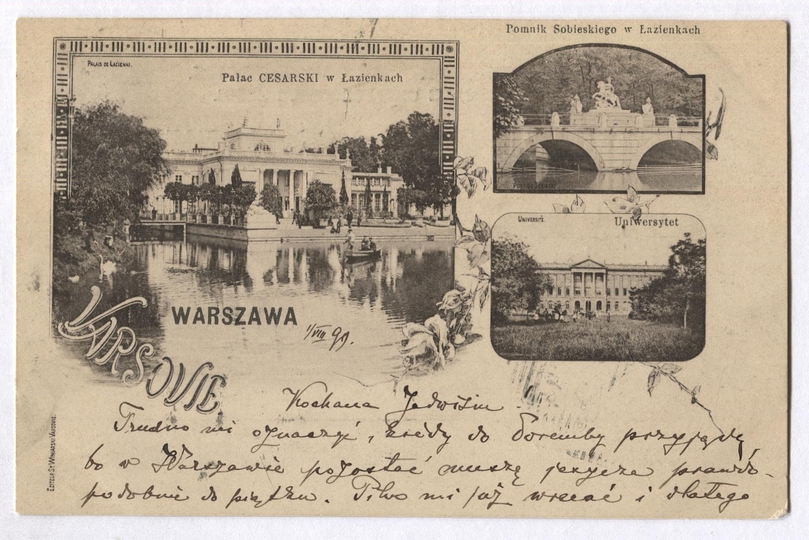 Pomnik Sobieskiego w Łazienkach
PALAIS DE ŁAZIENKI.
Pałac CESARSKI w Łazienkach
UNIVERSITÉ.
Uniwersytet
WARSZAWA
VARSOVIE
1/VIII 99.
Kochana Jadwisiu
Trudno mi oznaczyć, kiedy do Doremby przyjadę,
bo w Warszawie pozostać muszę jeszcze prawdo-
podobnie do piątku. Pilno mi już wracać i dlatego
EDITEUR ST. WINIARSKI VARSOVIE.